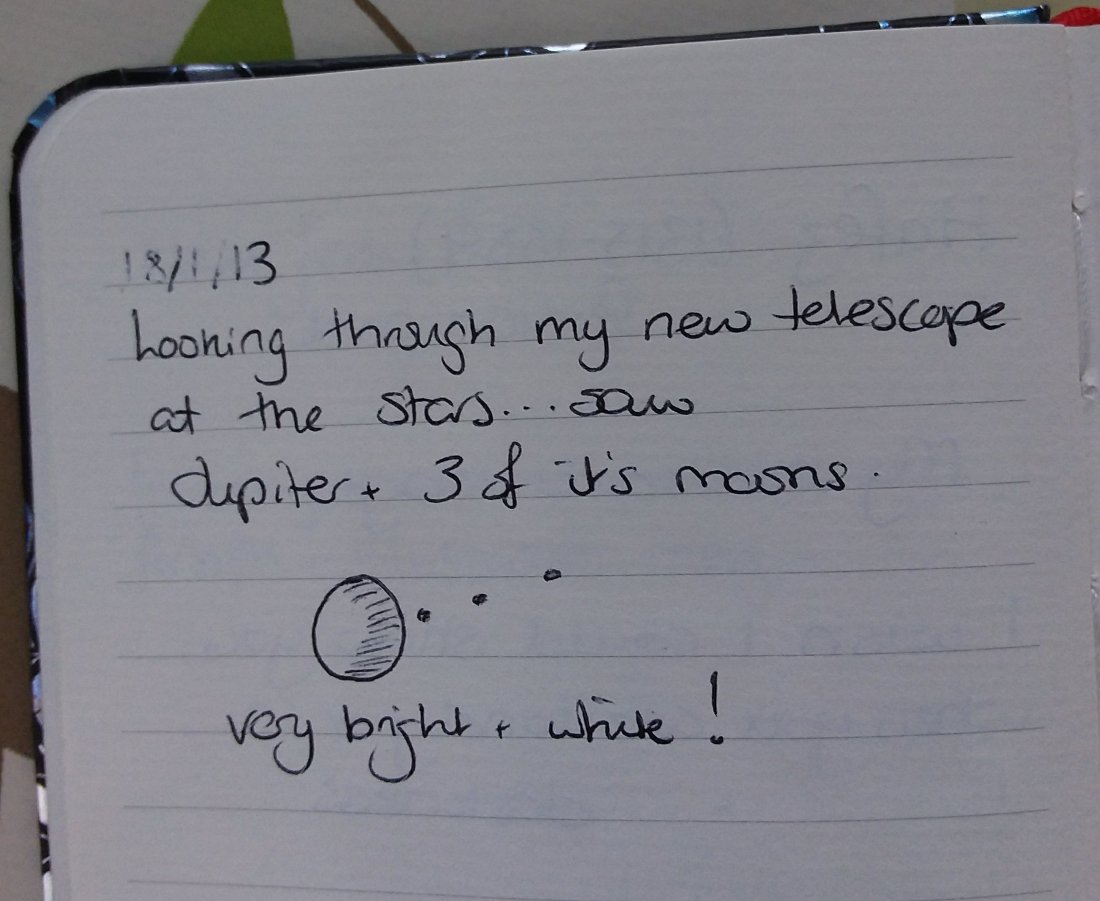 18/1/13
Looking through my new telescope
at the stars... saw
Jupiter + 3 of it's moons.
very bright + white!